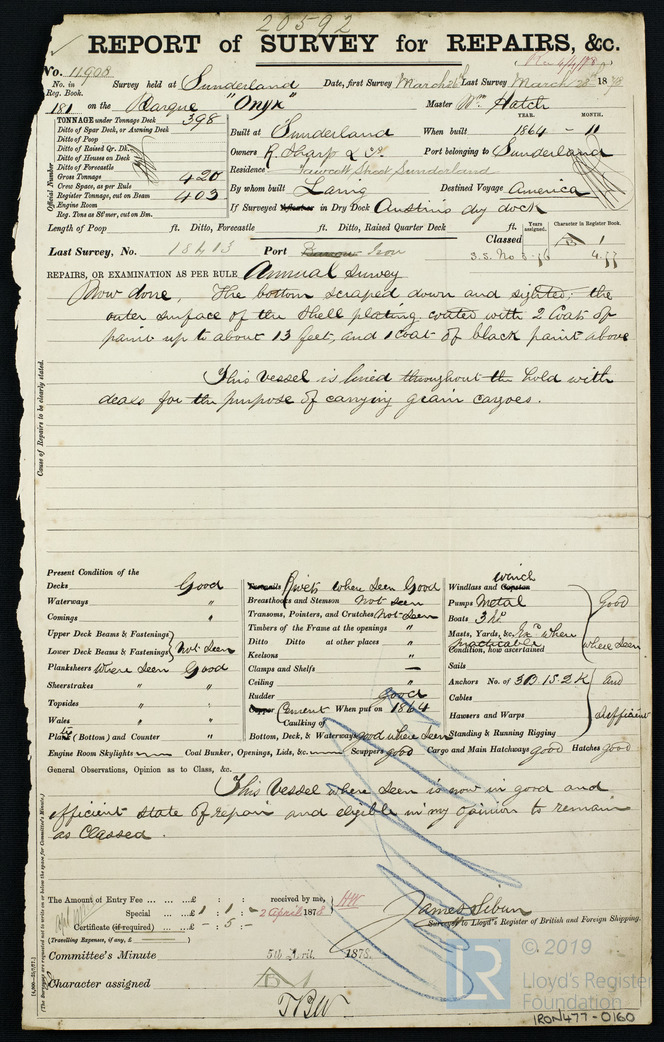 20592
REPORT of SURVEY for REPAIRS, &c.
No. 11908
No. in Reg. Book. Survey held at Sunderland Date, first Survey March Last Survey March 28th 1878
181 on the Barque "Onyx" Master Wm Hatch
TONNAGE under Tonnage Deck 398
Ditto of Spar Deck, or Awning Deck
Ditto of Poop
Ditto of Raised Qr. Dk.
Ditto of Houses on Deck
Ditto of Forecastle
Gross Tonnage 420
Crew Space, as per Rule
Register Tonnage, cut on Beam 403
Engine Room
Reg. Tons as Stmer, cut on Bm.
Official Number
Built at Sunderland When built YEAR. 1864 - MONTH. 11
Owners R. Sharp & Co. Port belonging to Sunderland
Residence Fawcett Street Sunderland
By whom built Laing Destined Voyage America
If Surveyed Afloat or in Dry Dock Austins dry dock
Length of Poop ft. Ditto, Forecastle ft. Ditto, Raised Quarter Deck ft.
Years assigned. Character in Register Book.
Last Survey, No. 18413 Port Iron Classed A 1
S.S. No 3-76 4.77
REPAIRS, OR EXAMINATION AS PER RULE Annual Survey
Now done, The bottom scraped down and sighted; the
outer surface of the shell plating, coated with 2 Coats of
paint up to about 13 feet, and 1 coat of black paint above
This vessel is lined throughout the hold with
deals for the purpose of carrying grain cargoes.
Cause of Repairs to be clearly stated.
Present Condition of the
Decks Good
Waterways "
Comings "
Upper Deck Beams & Fastenings
Lower Deck Beams & Fastenings Not Seen
Planksheers where seen Good
Sheerstrakes " "
Topsides " "
Wales " "
Plank (Bottom) and Counter " "
Treenails Rivets where seen Good
Breasthooks and Stemson Not seen
Transoms, Pointers, and Crutches Not seen
Timbers of the Frame at the openings "
Ditto Ditto at other places "
Keelsons "
Clamps and Shelfs —
Ceiling "
Rudder good
Copper Cement When put on 1864
Caulking of
Bottom, Deck, & Waterways good where seen
Windlass and Capston winch
Pumps Metal
Boats 3 No
Masts, Yards, &c. when
Condition, how ascertained practicable
Sails
Anchors No. of 3B. 1S. 2K
Cables
Hawsers and Warps
Standing & Running Rigging
Good
where seen
and
efficient
Engine Room Skylights Coal Bunker, Openings, Lids, &c. Scuppers good Cargo and Main Hatchways good Hatches good
General Observations, Opinion as to Class, &c.
This Vessel where seen is now in good and
efficient state of repair and eligible in my opinion to remain
as Classed.
The Amount of Entry Fee ... ... £ : : received by me,
Special ... ... £ 1 : 1 : - 2 April 1878 HW
Certificate (if required) ... £ - : 5 : -
(Travelling Expenses, if any, £ )
James Sibun
Surveyor to Lloyd's Register of British and Foreign Shipping.
Committee's Minute 5th April 1878.
Character assigned A 1
TBW
© 2019
LR
Lloyd's Register
Foundation
IRON477-0160